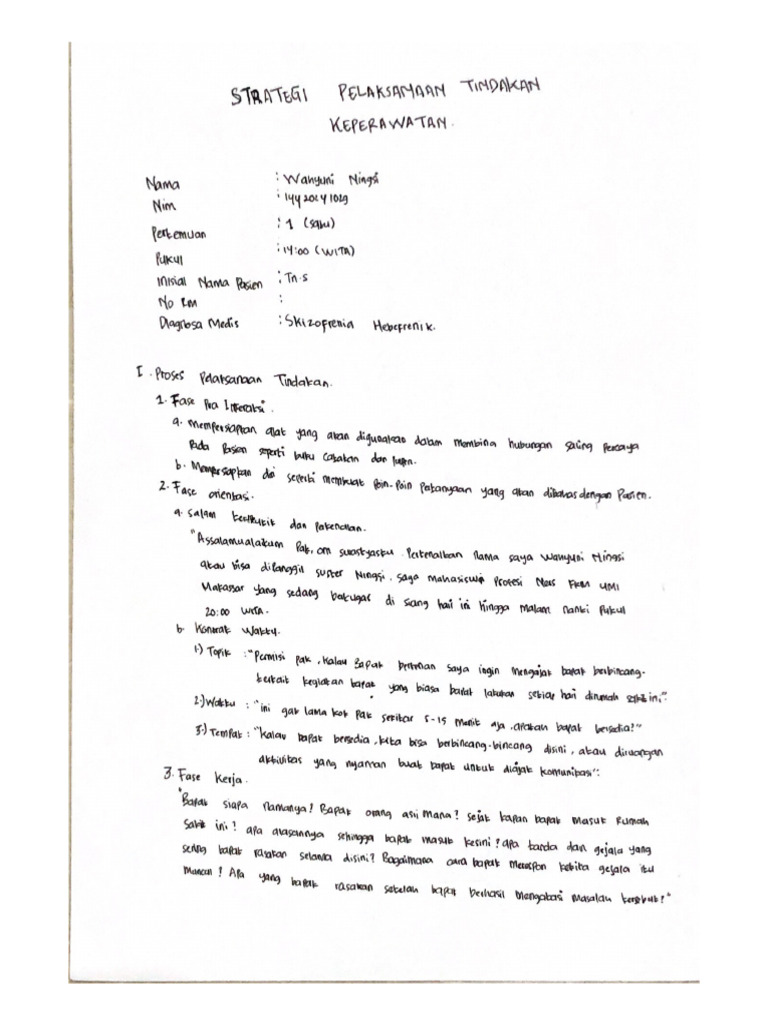 STRATEGI PELAKSANAAN TINDAKAN
KEPERAWATAN.
Nama : Wahyuni Ningsi
Nim : 14420241029
Pertemuan : 1 (satu)
Pukul : 14:00 (WITA)
Inisial Nama Pasien : Tn.S
No RM :
Diagnosa Medis : Skizofrenia Hebefrenik.
I. Proses Pelaksanaan Tindakan.
1. Fase Pra Interaksi.
a. Mempersiapkan alat yang akan digunakan dalam membina hubungan saling percaya
pada Pasien seperti buku catatan dan pulpen.
b. Mempersiapkan diri seperti membuat Poin-Poin Pertanyaan yang akan dibahas dengan Pasien.
2. Fase orientasi.
a. Salam terapeutik dan perkenalan.
"Assalamualaikum Pak, om swastyastu. Perkenalkan nama saya Wahyuni Ningsi
atau bisa dipanggil suster Ningsi. saya mahasiswa Profesi Ners FKM UMI
Makassar yang sedang bertugas di siang hari ini hingga malam nanti pukul
20:00 WITA.
b. Kontrak Waktu.
1.) Topik : "Permisi pak, kalau Bapak berkenan saya ingin mengajak bapak berbincang-
terkait kegiatan bapak yang biasa bapak lakukan setiap hari dirumah sakit ini".
2.) Waktu : "ini gak lama kok pak sekitar 5-15 menit aja. apakah bapak bersedia?"
3.) Tempat : "kalau bapak bersedia, kita bisa berbincang-bincang disini, atau diruangan
aktivitas yang nyaman buat bapak untuk diajak komunikasi".
3. Fase Kerja.
"Bapak siapa namanya? Bapak orang asli mana? sejak kapan bapak masuk Rumah
Sakit ini? apa alasannya sehingga bapak masuk kesini? apa tanda dan gejala yang
sering bapak rasakan selama disini? Bagaimana cara bapak merespon ketika gejala itu
muncul? Apa yang bapak rasakan setelah bapak berhasil mengatasi masalah tersebut?"